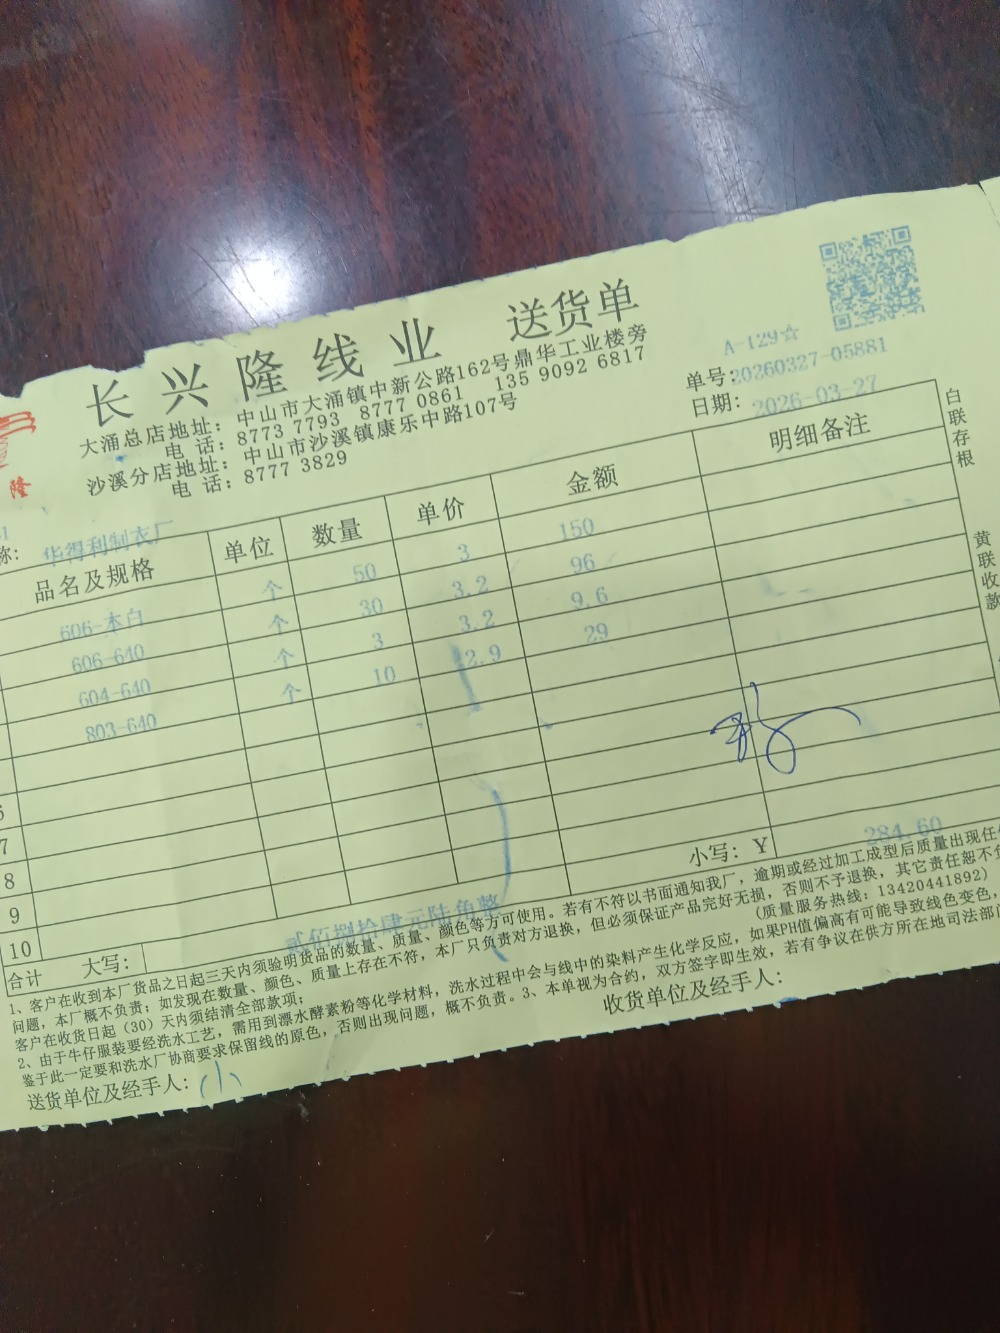 长兴隆线业 送货单
A-129☆
大涌总店地址：中山市大涌镇中新公路162号鼎华工业楼旁
单号：20260327-05881
电 话：8773 7793 8777 0861 135 9092 6817
日期：2026-03-27
沙溪分店地址：中山市沙溪镇康乐中路107号
电 话：8777 3829
隆
称：华得利制衣厂
品名及规格 单位 数量 单价 金额 明细备注
606-本白 个 50 3 150
606-640 个 30 3.2 96
604-640 个 3 3.2 9.6
803-640 个 10 2.9 29
7
8
9
10
合计 大写：贰佰捌拾肆元陆角整 小写：Y 284.60
1、客户在收到本厂货品之日起三天内须验明货品的数量、质量、颜色等方可使用。若有不符以书面通知我厂，逾期或经过加工成型后质量出现任何
问题，本厂概不负责；如发现在数量、颜色、质量上存在不符，本厂只负责对方退换，但必须保证产品完好无损，否则不予退换，其它责任恕不负
客户在收货日起（30）天内须结清全部款项；（质量服务热线：13420441892）
2、由于牛仔服装要经洗水工艺，需用到漂水酵素粉等化学材料，洗水过程中会与线中的染料产生化学反应，如果PH值偏高有可能导致线色变色，
鉴于此一定要和洗水厂协商要求保留线的原色，否则出现问题，概不负责。3、本单视为合约，双方签字即生效，若有争议在供方所在地司法部门
送货单位及经手人：小 收货单位及经手人：
白联存根
黄联收款